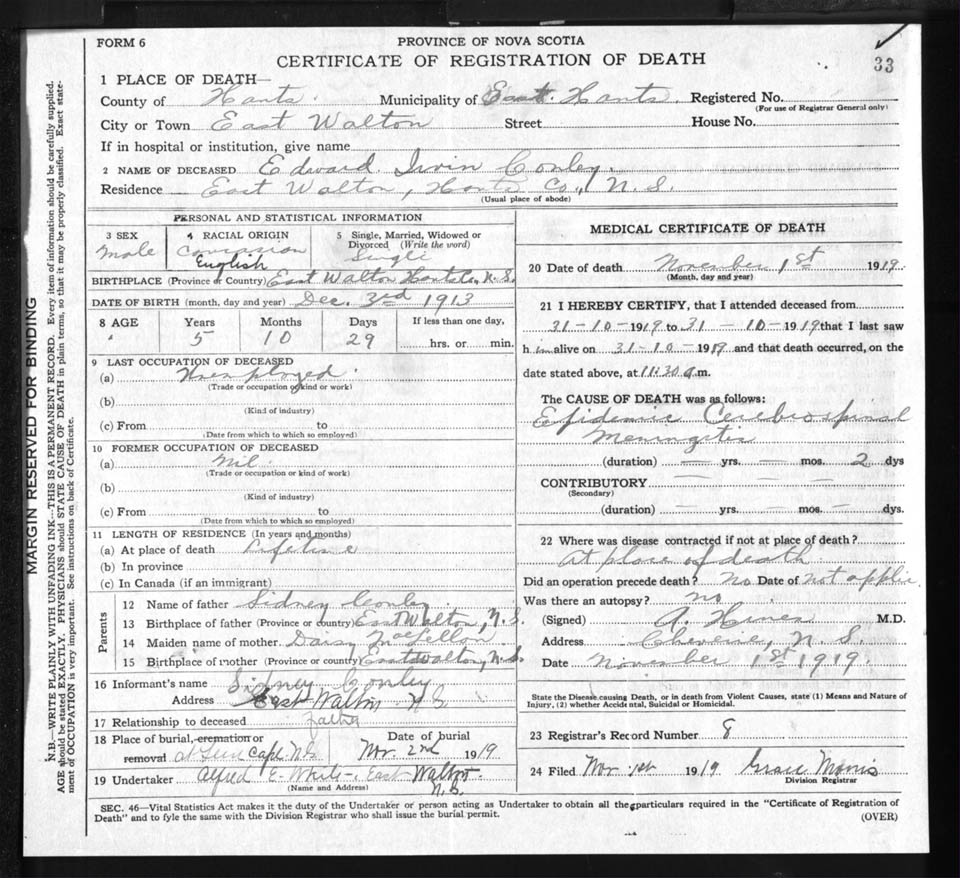 FORM 6
PROVINCE OF NOVA SCOTIA
CERTIFICATE OF REGISTRATION OF DEATH
33
1 PLACE OF DEATH—
County of Hants Municipality of East Hants Registered No.
(For use of Registrar General only)
City or Town East Walton Street House No.
If in hospital or institution, give name
2 NAME OF DECEASED Edward Irvin Conley
Residence East Walton, Hants Co., N.S.
(Usual place of abode)
PERSONAL AND STATISTICAL INFORMATION
3 SEX
Male
4 RACIAL ORIGIN
English
5 Single, Married, Widowed or
Divorced (Write the word)
Single
BIRTHPLACE (Province or Country) East Walton Hants Co. N.S.
DATE OF BIRTH (month, day and year) Dec. 3rd 1913
8 AGE Years Months Days If less than one day,
5 10 29 hrs. or min.
9 LAST OCCUPATION OF DECEASED
(a) Unemployed
(Trade or occupation or kind or work)
(b)
(Kind of industry)
(c) From to
(Date from which to which so employed)
10 FORMER OCCUPATION OF DECEASED
(a) Nil.
(Trade or occupation or kind of work)
(b)
(Kind of industry)
(c) From to
(Date from which to which so employed)
11 LENGTH OF RESIDENCE (In years and months)
(a) At place of death Lifetime
(b) In province
(c) In Canada (if an immigrant)
Parents
12 Name of father Sidney Conley
13 Birthplace of father (Province or country) East Walton, N.S.
14 Maiden name of mother Daisy
15 Birthplace of mother (Province or country) East Walton, N.S.
16 Informant's name Sidney Conley
Address East Walton N S
17 Relationship to deceased father
18 Place of burial, cremation or
removal N.S
Date of burial
Nov. 2nd 1919
19 Undertaker Alfred E. White, East Walton
N.S.
(Name and Address)
MEDICAL CERTIFICATE OF DEATH
20 Date of death November 1st 1919.
(Month, day and year)
21 I HEREBY CERTIFY, that I attended deceased from
31-10-1919 to 31-10-1919 that I last saw
him alive on 31-10-1919 and that death occurred, on the
date stated above, at 11.30 a.m.
The CAUSE OF DEATH was as follows:
Epidemic Cerebrospinal
Meningitis
(duration) — yrs. — mos. 2 dys
CONTRIBUTORY — — —
(Secondary)
(duration) — yrs. — mos. — dys.
22 Where was disease contracted if not at place of death?
At place of death
Did an operation precede death? No Date of Not applic
Was there an autopsy? No
(Signed) A. M.D.
Address Cheverie, N.S.
Date November 1st 1919.
State the Disease causing Death, or in death from Violent Causes, state (1) Means and Nature of
Injury, (2) whether Accidental, Suicidal or Homicidal.
23 Registrar's Record Number 8
24 Filed Nov 1st 1919 Grace Morris
Division Registrar
SEC. 46—Vital Statistics Act makes it the duty of the Undertaker or person acting as Undertaker to obtain all the particulars required in the "Certificate of Registration of
Death" and to fyle the same with the Division Registrar who shall issue the burial permit.
(OVER)
MARGIN RESERVED FOR BINDING
N.B.—WRITE PLAINLY WITH UNFADING INK—THIS IS A PERMANENT RECORD. Every item of information should be carefully supplied.
AGE should be stated EXACTLY. PHYSICIANS should STATE CAUSE OF DEATH in plain terms, so that it may be properly classified. Exact state-
ment of OCCUPATION is very important. See instructions on back of Certificate.